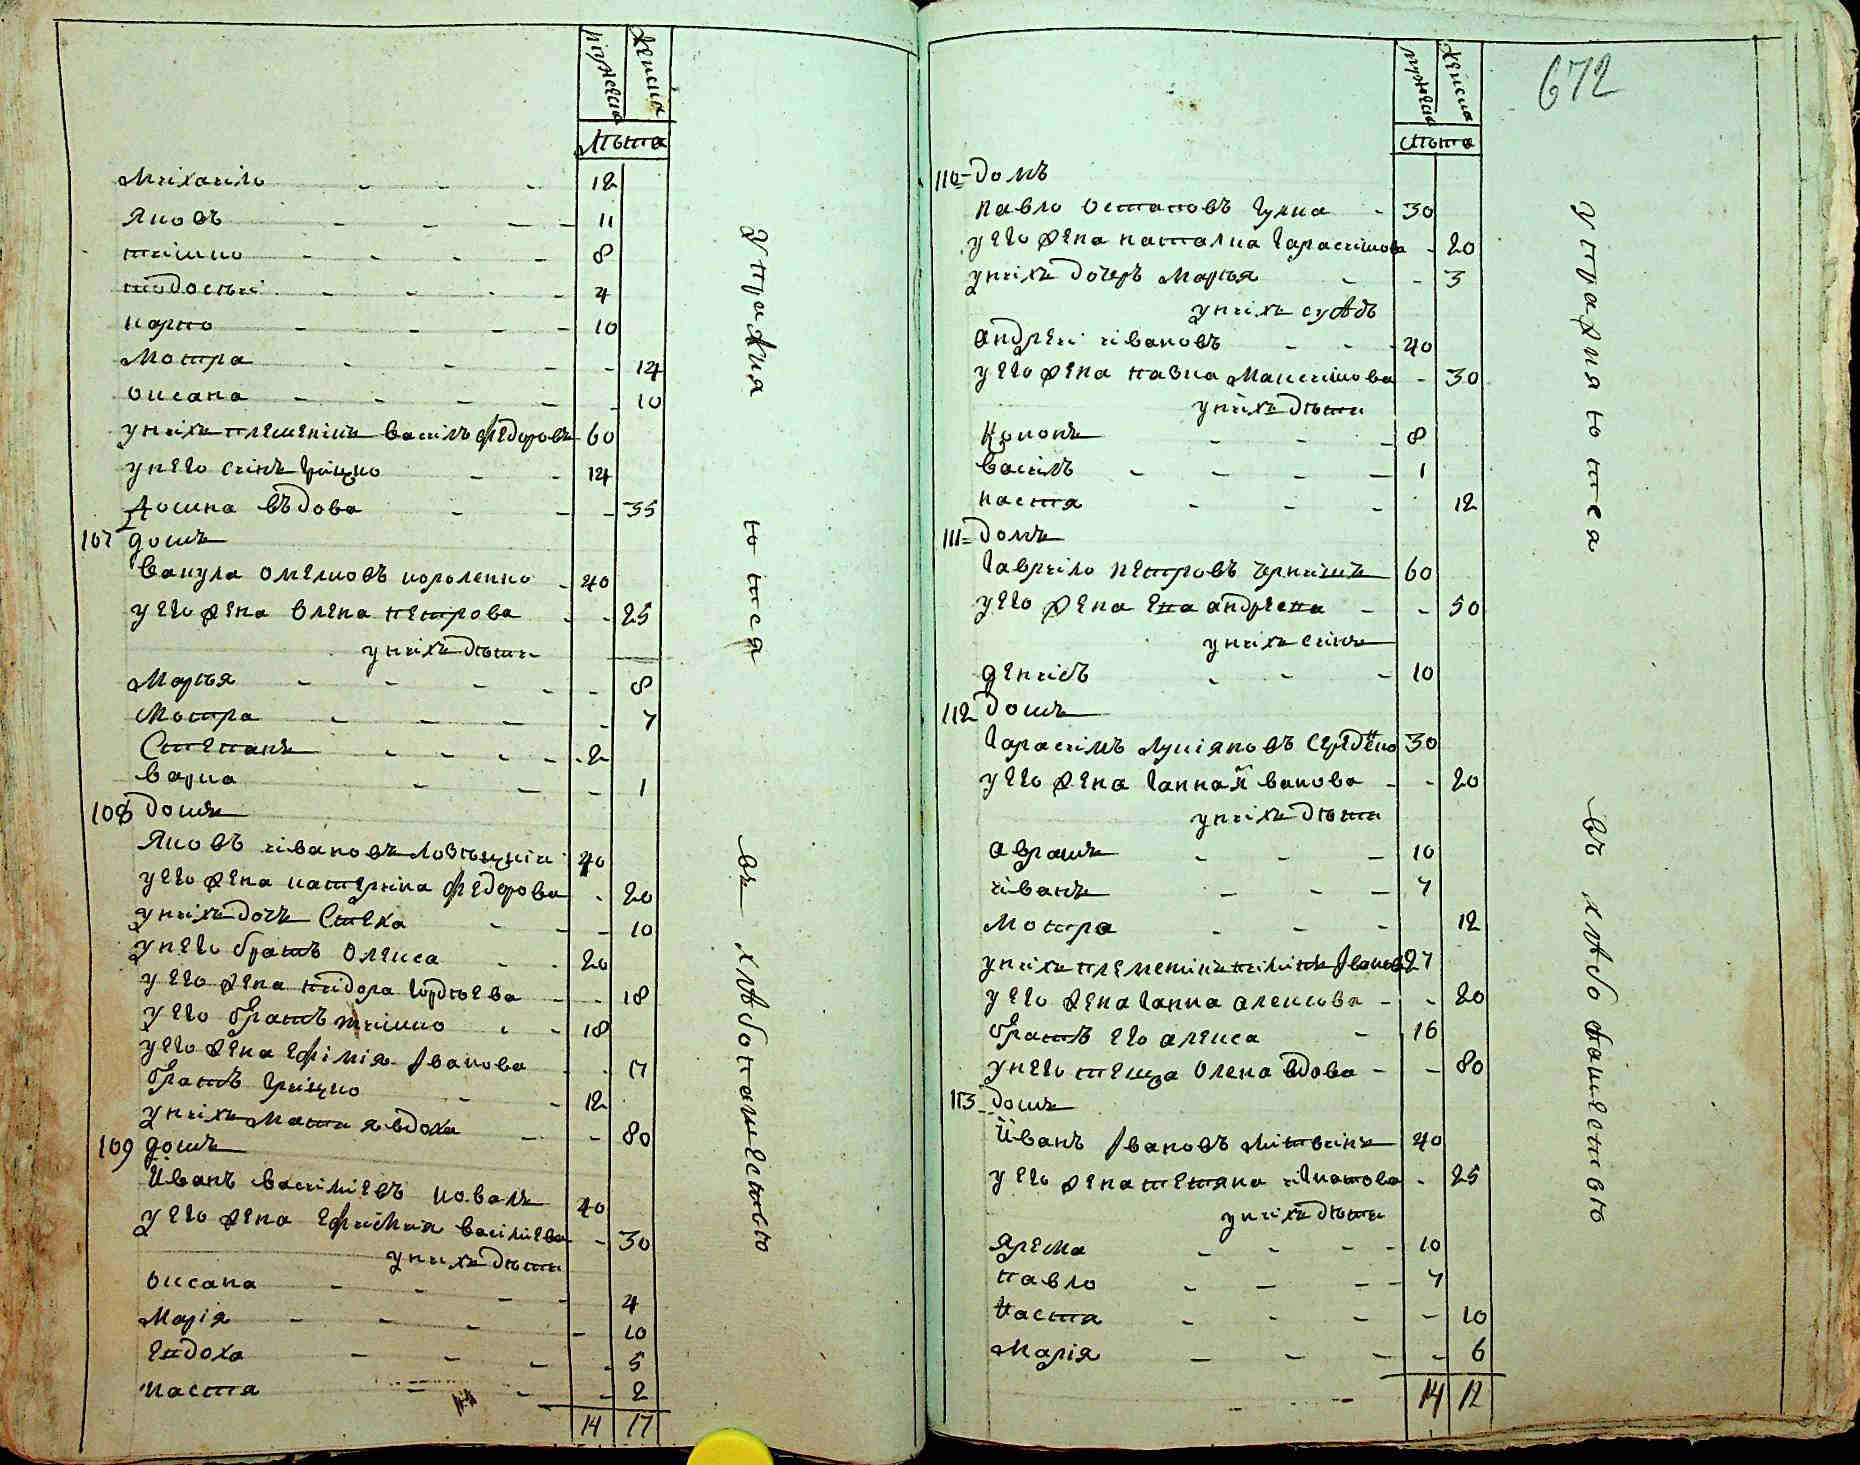 мужеска женска
лѣта
Михаило 12
Яковъ 11
тишко 8
тодосѣи 4
карпо 10
Мотра 14
оксана 10
унихъ племеникъ василъ федоровъ 60
унего синъ грицко 14
Домна въдова 35
107 домъ
Вакула омелковъ короленко 40
у его жена олена петрова 25
унихъ дѣти
Марѣя 8
Мотра 7
Степанъ 2
варка 1
108 домъ
Яковъ ивановъ 40
у его жена катерина федорова 20
унихъ дочъ Стеха 10
унего братъ олекса 20
у его жена тидора гордѣева 18
у его братъ тишко 18
у его жена ефимія Іванова 17
братъ грицко 12
унихъ мати явдоха 80
109 домъ
Иванъ василиевъ коваль 40
у его жена ефимия василиева 30
унихъ дѣти
оксана 4
Марія 10
Евдоха 5
настя 2
14 17
упражняются въ хлѣбопашествѣю
672
мужеска женска
лѣта
110 домъ
павло остаповъ гулка 30
у его жена наталка гарасимова 20
унихъ дочеръ Марѣя 3
унихъ сусѣдъ
андреи ивановъ 40
у его жена пазка Максимова 30
унихъ дѣти
Кононъ 8
василъ 1
настя 12
111 домъ
гаврило петровъ 60
у его жена ева андреева 50
унихъ синъ
денисъ 10
112 домъ
гарасимъ лукіяновъ 30
у его жена ганна ивановa 20
унихъ дѣти
аврамъ 10
иванъ 7
Мотра 12
унихъ племеникъ Івановъ 27
у его жена ганна алексова 20
братъ его алекса 16
унего теща олена вдова 80
113 домъ
Иванъ Івановъ литвинъ 40
у его жена тетяна игнатова 25
унихъ дѣти
ярема 10
павло 7
Настя 10
Марія 6
14 12
упражняются въ хлѣбопашествѣю